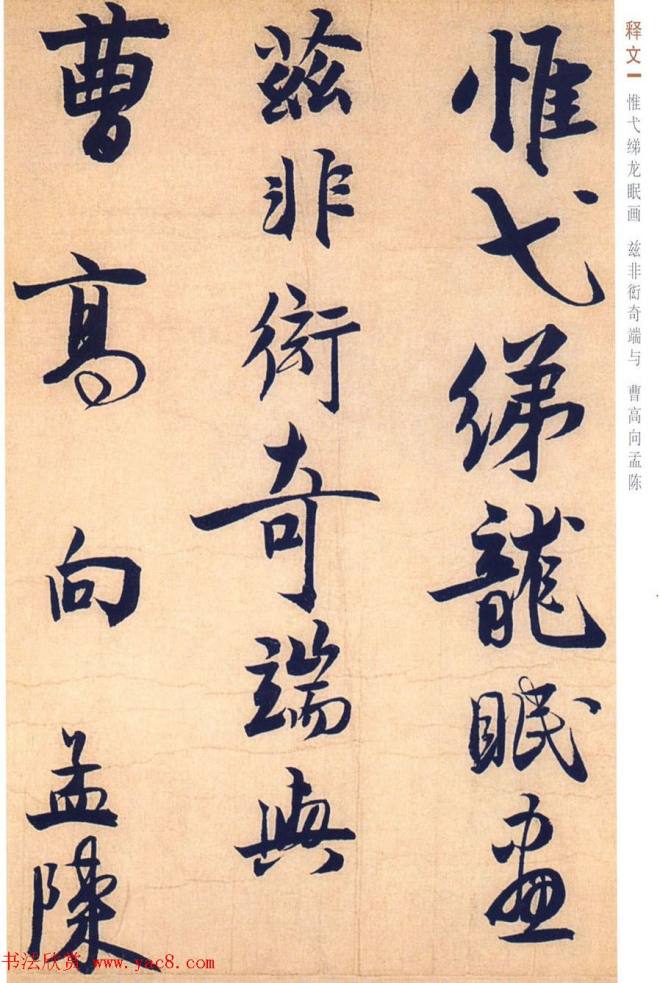 惟弋绨龍眠畫
兹非衒奇端與
曹高向孟陳
释文 惟弋绨龙眠画 兹非衒奇端与 曹高向孟陈
书法欣赏 www.yac8.com